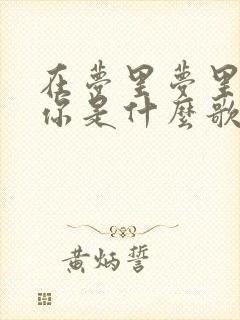 在夢里夢里
你是什麼歌
黄炳誓